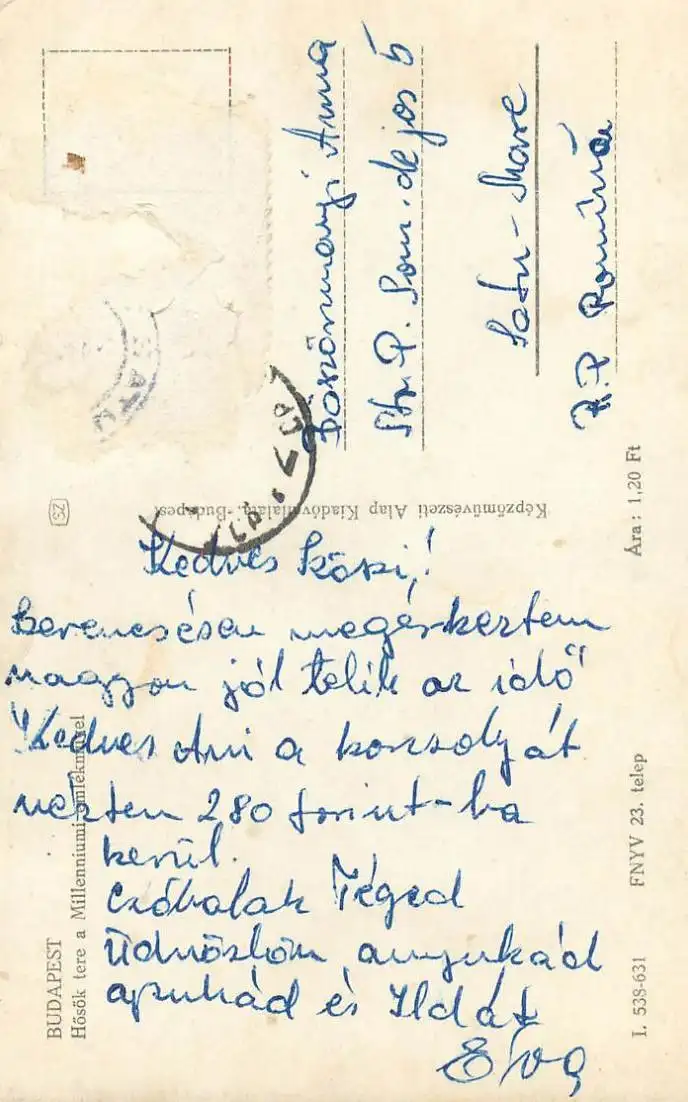 Böszörményi Anna
Str. P. Som. de jos 5
Satu-Mare
R.P. Română
Képzőművészeti Alap Kiadóvállalata, Budapest
Ára: 1,20 Ft
SZ
SATU
Kedves
megérkeztem
nagyon jól telik az idő
"Kedves Ani a
280 forint-ba
kerül.
Czókolak Téged
Üdvözlöm anyukád
apukád és Ildát
Éva
BUDAPEST
Hősök tere a Millenniumi emlékművel
I. 538-631
FNYV 23. telep